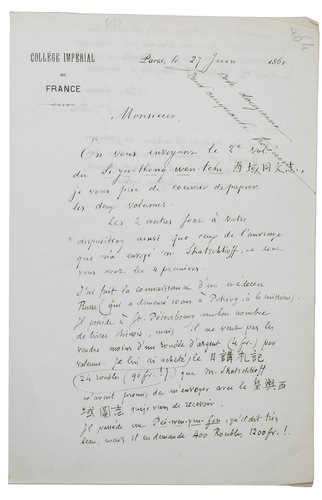 COLLÉGE IMPÉRIAL
DE
FRANCE
Paris, le 27 Juin 1861
Monsieur,
En vous envoyant le 2e vol.
du Si-yu-thong-wen-tchi 西域同文志,
je vous prie de couvrir de papier
les deux volumes.
Les 2 autres sont à votre
disposition ainsi que ceux de l'ouvrage
que m'a envoyé M. Skatschkoff, et dont
vous avez les 4 premiers.
J'ai fait la connaissance d'un médecin
Russe (qui a demeuré 10 ans à Péking, à la mission).
Il possède à St. Pétersbourg nombre
de livres chinois, mais il ne veut pas les
vendre moins d'un rouble d'argent (4 fr.) par
volume. Je lui ai acheté le 日講礼記
(24 roubles (96 fr.!) que M. Skatschkoff
m'avait promis de m'envoyer avec le 皇輿西
域圖志 que je viens de recevoir.
Il possède un Peï-wen-yun-fou, qu'il dit très
beau, mais il en demande 400 Roubles 1200 fr.!.